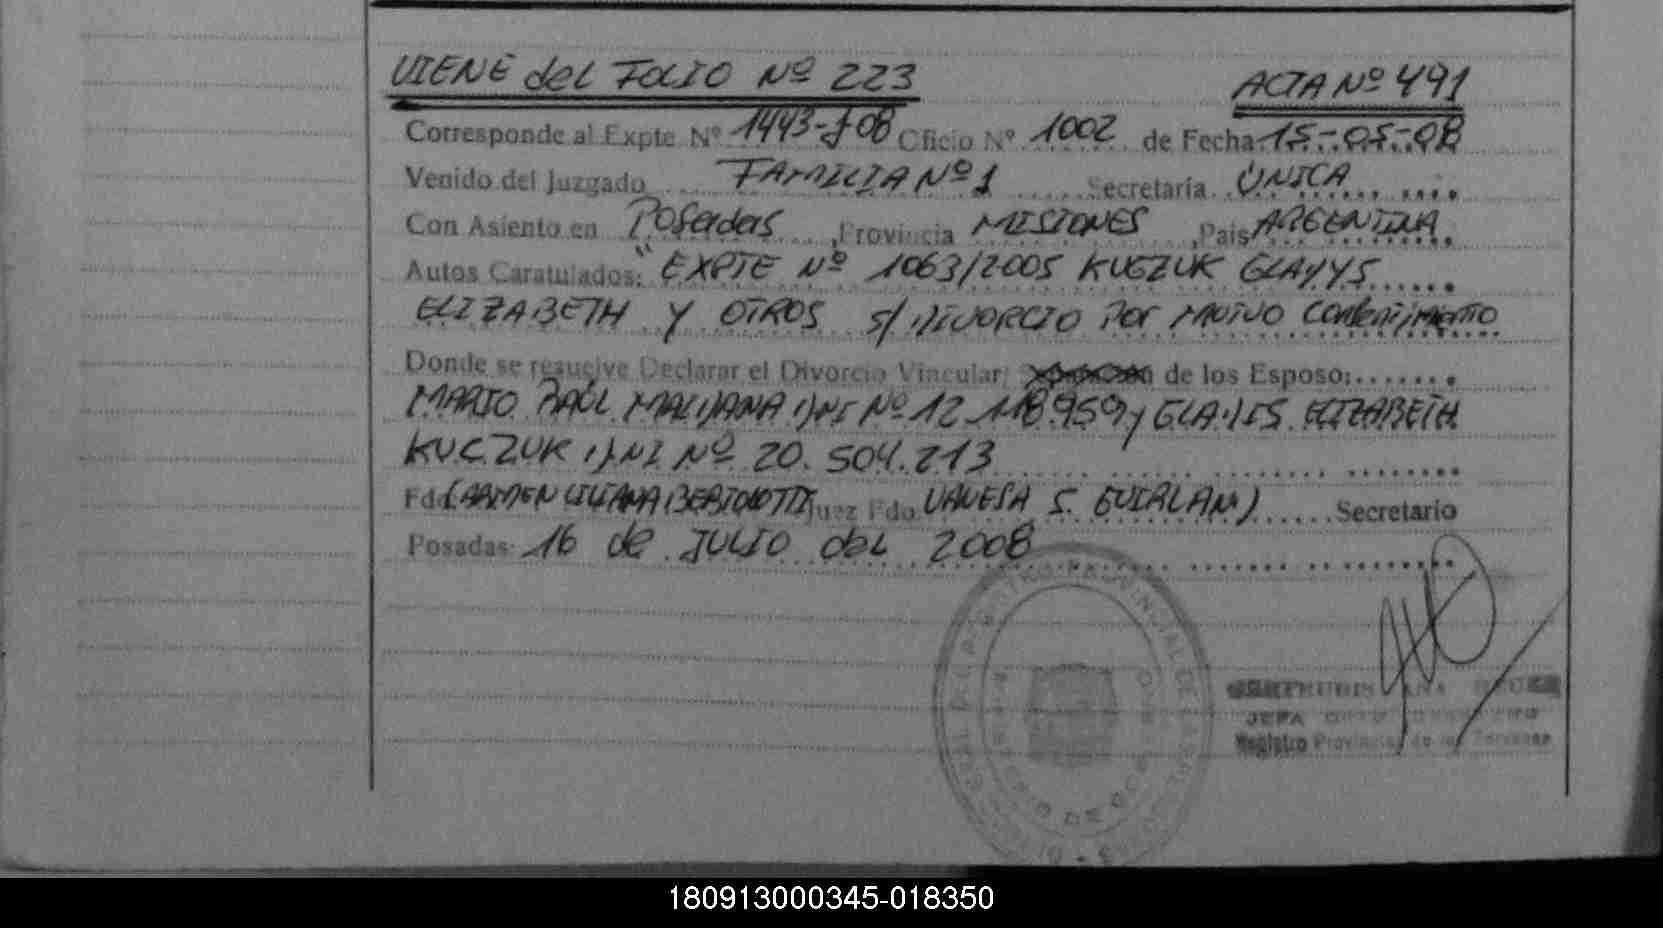 VIENE del FOLIO Nº 223 ACTA Nº 491
Corresponde al Expte Nº 1443-J-08 Oficio Nº 1002 de Fecha: 15-05-08
Venido del Juzgado FAMILIA Nº 1 Secretaría ÚNICA
Con Asiento en Posadas, Provincia MISIONES, Pais ARGENTINA
Autos Caratulados: "EXPTE Nº 1063/2005 KUCZUK GLADYS
ELIZABETH Y OTROS S/ DIVORCIO Por MUTUO
Donde se resuelve Declarar el Divorcio Vincular, de los Esposo:
MARIO RAÚL MALDANA DNI Nº 12.118.959 y GLADIS ELIZABETH
KUCZUK DNI Nº 20.504.213
Fdo CARMEN LILIANA BERTOLOTTI Juez Fdo VANESA S. Secretario
Posadas: 16 de JULIO del 2008
REGISTRO PROVINCIAL DE LAS PERSONAS
MINISTERIO DE
GERTRUDIS ANA
JEFA
Registro Provincial de las Personas
180913000345-018350